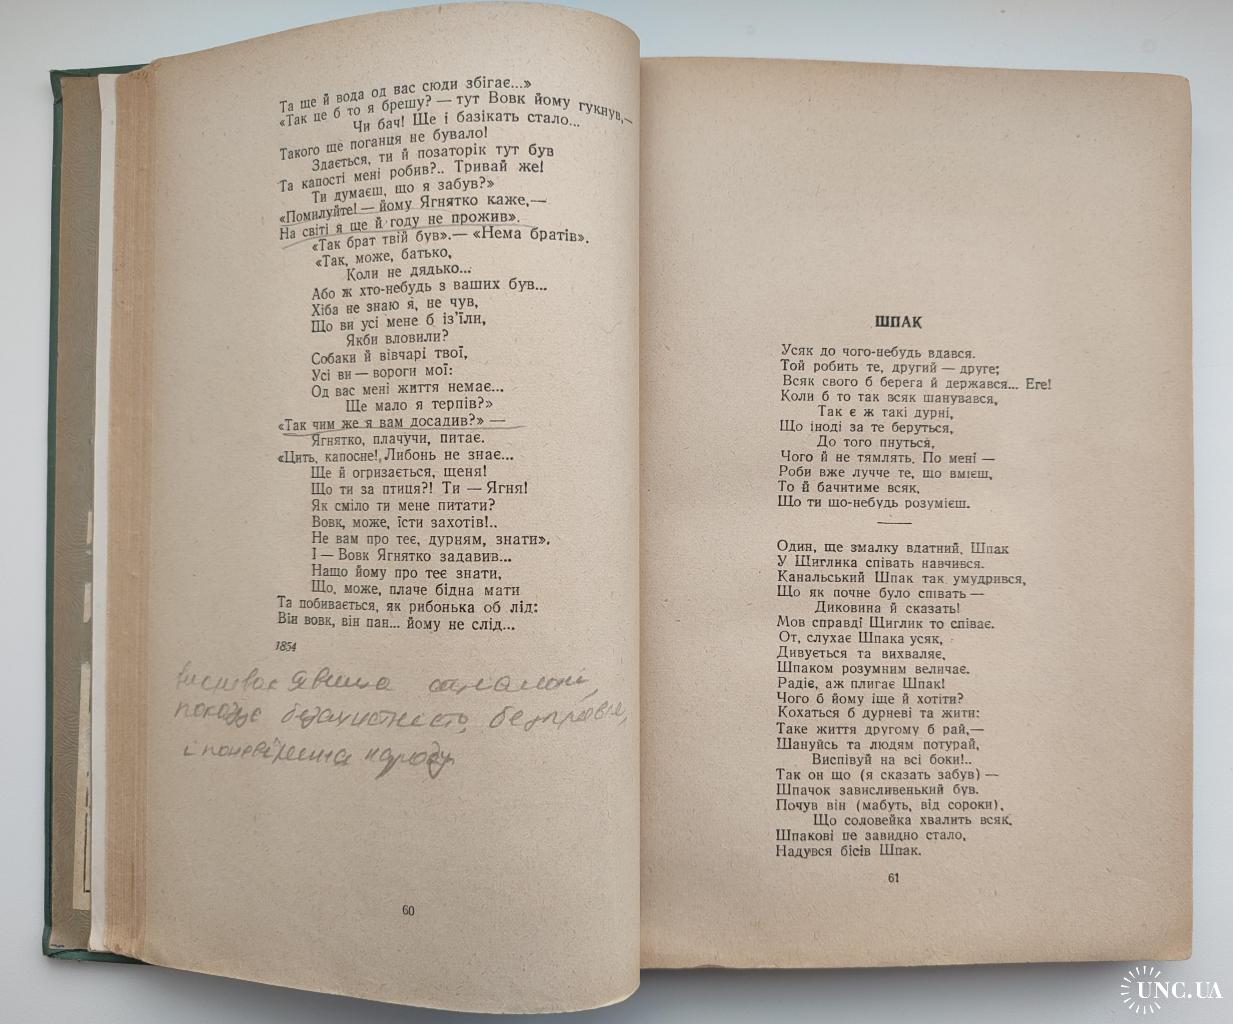 Та ще й вода од вас сюди збігає...»
«Так це б то я брешу? — тут Вовк йому гукнув,—
Чи бач! Ще і базікать стало...
Такого ще поганця не бувало!
Здається, ти й позаторік тут був
Та капості мені робив?.. Тривай же!
Ти думаєш, що я забув?»
«Помилуйте! — йому Ягнятко каже,—
На світі я ще й году не прожив».
«Так брат твій був».— «Нема братів».
«Так, може, батько,
Коли не дядько...
Або ж хто-небудь з ваших був...
Хіба не знаю я, не чув,
Що ви усі мене б із’їли,
Якби вловили?
Собаки й вівчарі твої,
Усі ви — вороги мої:
Од вас мені життя немає...
Ще мало я терпів?»
«Так чим же я вам досадив?» —
Ягнятко, плачучи, питає.
«Цить, капосне!. Либонь не знає...
Ще й огризається, щеня!
Що ти за птиця?! Ти — Ягня!
Як сміло ти мене питати?
Вовк, може, їсти захотів!..
Не вам про теє, дурням, знати».
І — Вовк Ягнятко задавив...
Нащо йому про теє знати,
Що, може, плаче бідна мати
Та побивається, як рибонька об лід:
Він вовк, він пан... йому не слід...
1854
явища
показує беззахистність, безправ'я,
і поневіряння народу
60
ШПАК
Усяк до чого-небудь вдався.
Той робить те, другий — друге;
Всяк свого б берега й держався... Еге!
Коли б то так всяк шанувався,
Так є ж такі дурні,
Що іноді за те беруться,
До того пнуться,
Чого й не тямлять. По мені —
Роби вже лучче те, що вмієш,
То й бачитиме всяк,
Що ти що-небудь розумієш.
Один, ще змалку вдатний, Шпак
У Щиглика співать навчився.
Канальський Шпак так умудрився,
Що як почне було співать —
Диковина й сказать!
Мов справді Щиглик то співає.
От, слухає Шпака усяк,
Дивується та вихваляє,
Шпаком розумним величає.
Радіє, аж плигає Шпак!
Чого б йому іще й хотіти?
Кохаться б дурневі та жити:
Таке життя другому б рай,—
Шануйсь та людям потурай,
Виспівуй на всі боки!..
Так он що (я сказать забув) —
Шпачок завислив­енький був.
Почув він (мабуть, від сороки),
Що соловейка хвалить всяк.
Шпакові це завидно стало,
Надувся бісів Шпак.
61
UNC.UA